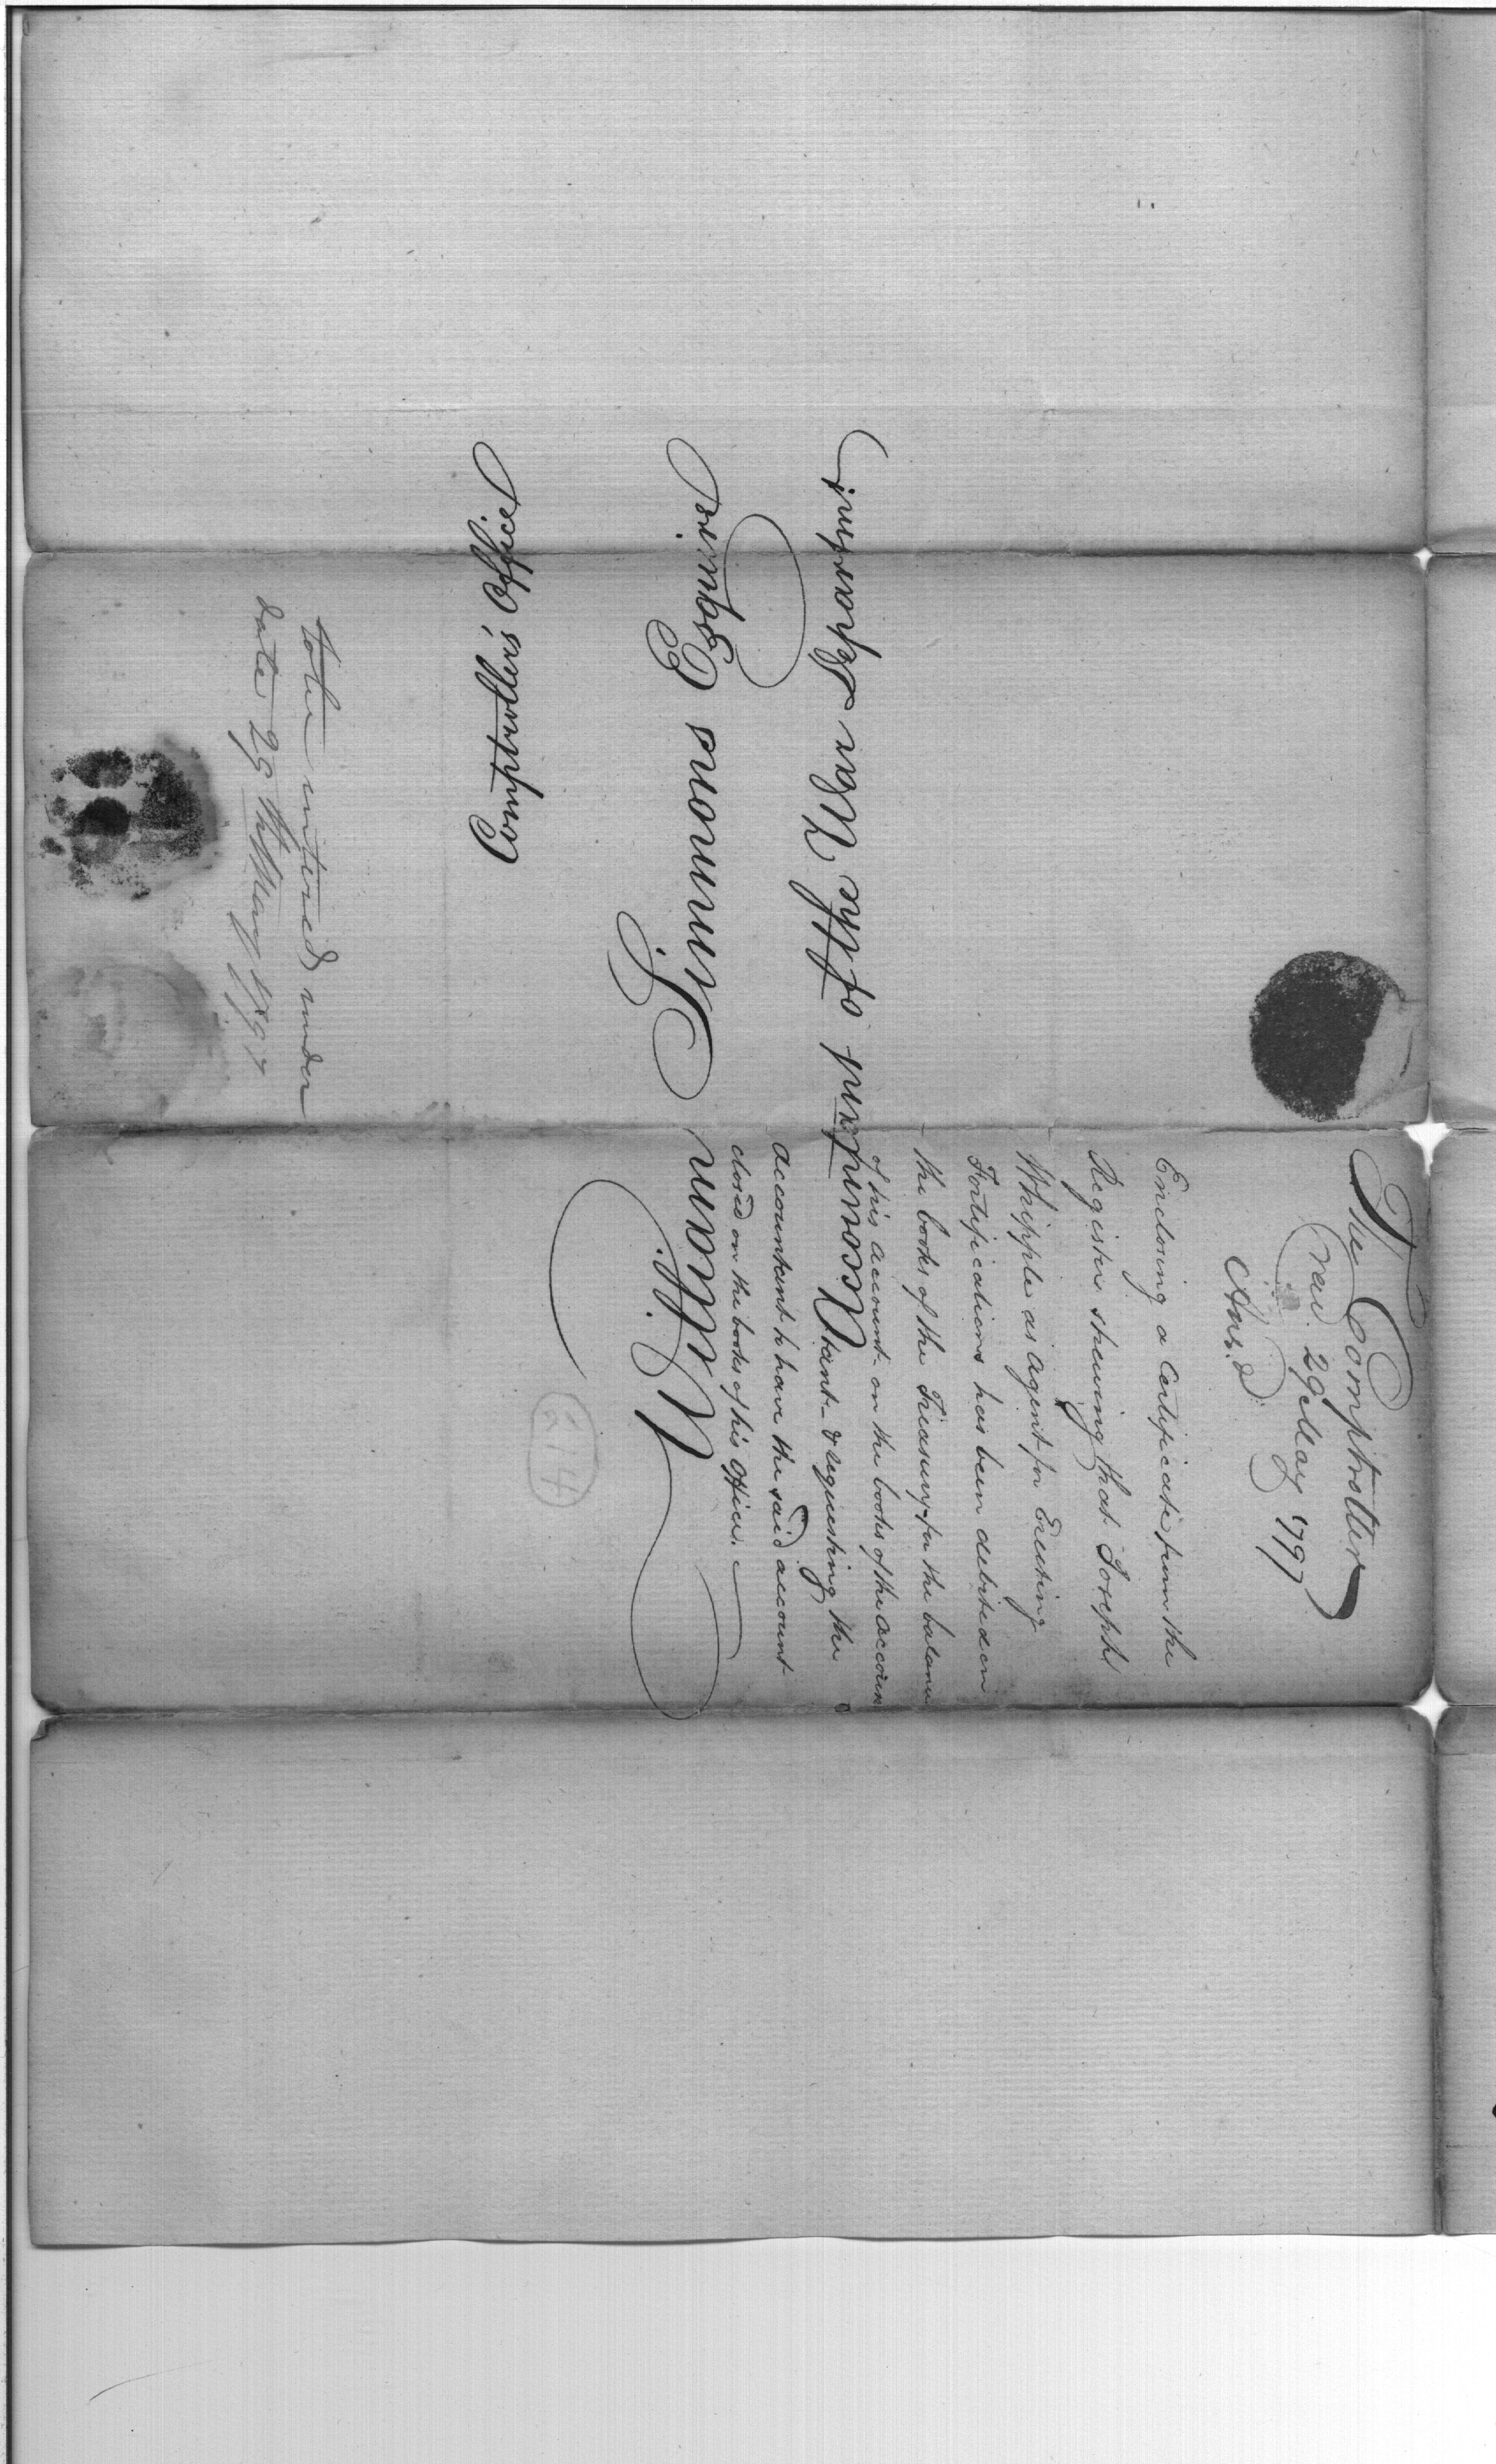 The Comptroller
recd. 29 May 1797
Ansd.
Enclosing a Certificate from the
Register shewing that Joseph
Whipple as Agent for Erecting
Fortifications has been debited on
the books of the Treasury for the balance
of his account on the books of the Accoun
tant & requesting the
Accountant to have the said account
closed on the books of his Office.
William Simmons Esquire
Accountant of the War Department
Comptroller's Office
to be entered under
date 29th May 1797
214